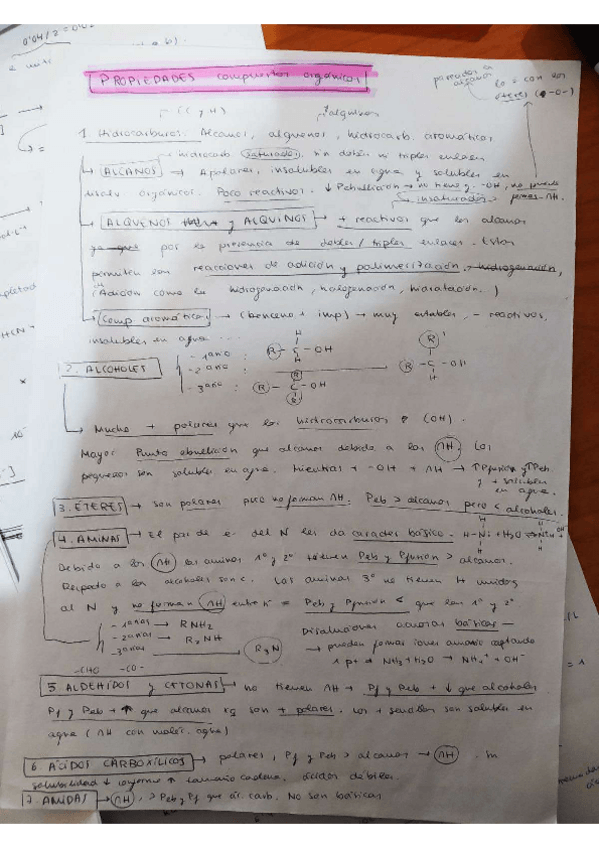 PROPIEDADES compuestos orgánicos
parecidos en alcanos
éteres (-O-)
(C y H)
1. Hidrocarburos. Alcanos, alquenos, hidrocarb. aromáticos
hidrocarb saturados, sin dobles ni triples enlaces
ALCANOS → Apolares, insolubles en agua y solubles en
orgánicos. Poco reactivos. ↓ Pebullición → no tiene -OH, no puede
insaturados
ALQUENOS y ALQUINOS → + reactivos que los alcanos
por la presencia de dobles/triples enlaces. Estos
permiten son reacciones de adición y polimerización. hidrogenación,
(Adición como la hidrogenación, halogenación, hidratación.)
Comp. aromáticos → (benceno + imp) → muy estables, - reactivos,
insolubles en agua ...
2. ALCOHOLES
- 1ario : R - C - OH
- 2ario :
- 3ario : R - C - OH
R - C - OH
H
Mucho + polares que los hidrocarburos (OH).
Mayor Punto ebullición que alcanos debido a los ΛH. Los
pequeños son solubles en agua. Mientras + -OH + ΛH → ↑Pfusión y ↑Peb.
y + soluble en agua.
3. ÉTERES → son polares pero no forman ΛH. Peb > alcanos pero < alcoholes
4. AMINAS → El par de e- del N les da carácter básico.
Debido a los ΛH las aminas 1º y 2º tienen Peb y Pfusión > alcanos.
Respecto a los alcoholes son <. Las aminas 3º no tienen H unidos
al N y no forman ΛH entre = Peb y Pfusión < que las 1º y 2º
- 1arias → RNH2
- 2arias → R2NH
- 3arias → R3N
Disoluciones acuosas básicas —
→ pueden formar iones amonio captando
1 p+ ⇒ NH3 + H2O → NH4+ + OH-
-CHO -CO-
5. ALDEHÍDOS y CETONAS → no tienen ΛH → Pf y Peb + ↓ que alcoholes
Pf y Peb + ↑ que alcanos son + polares. Los + sencillos son solubles en
agua (ΛH con moléc. agua)
6. ÁCIDOS CARBOXÍLICOS → polares, Pf y Peb > alcanos → ΛH.
solubilidad ↓ conforme ↑ tamaño cadena, ácidos débiles.
7. AMIDAS → ΛH, > Peb y Pf que ác. carb. No son básicas